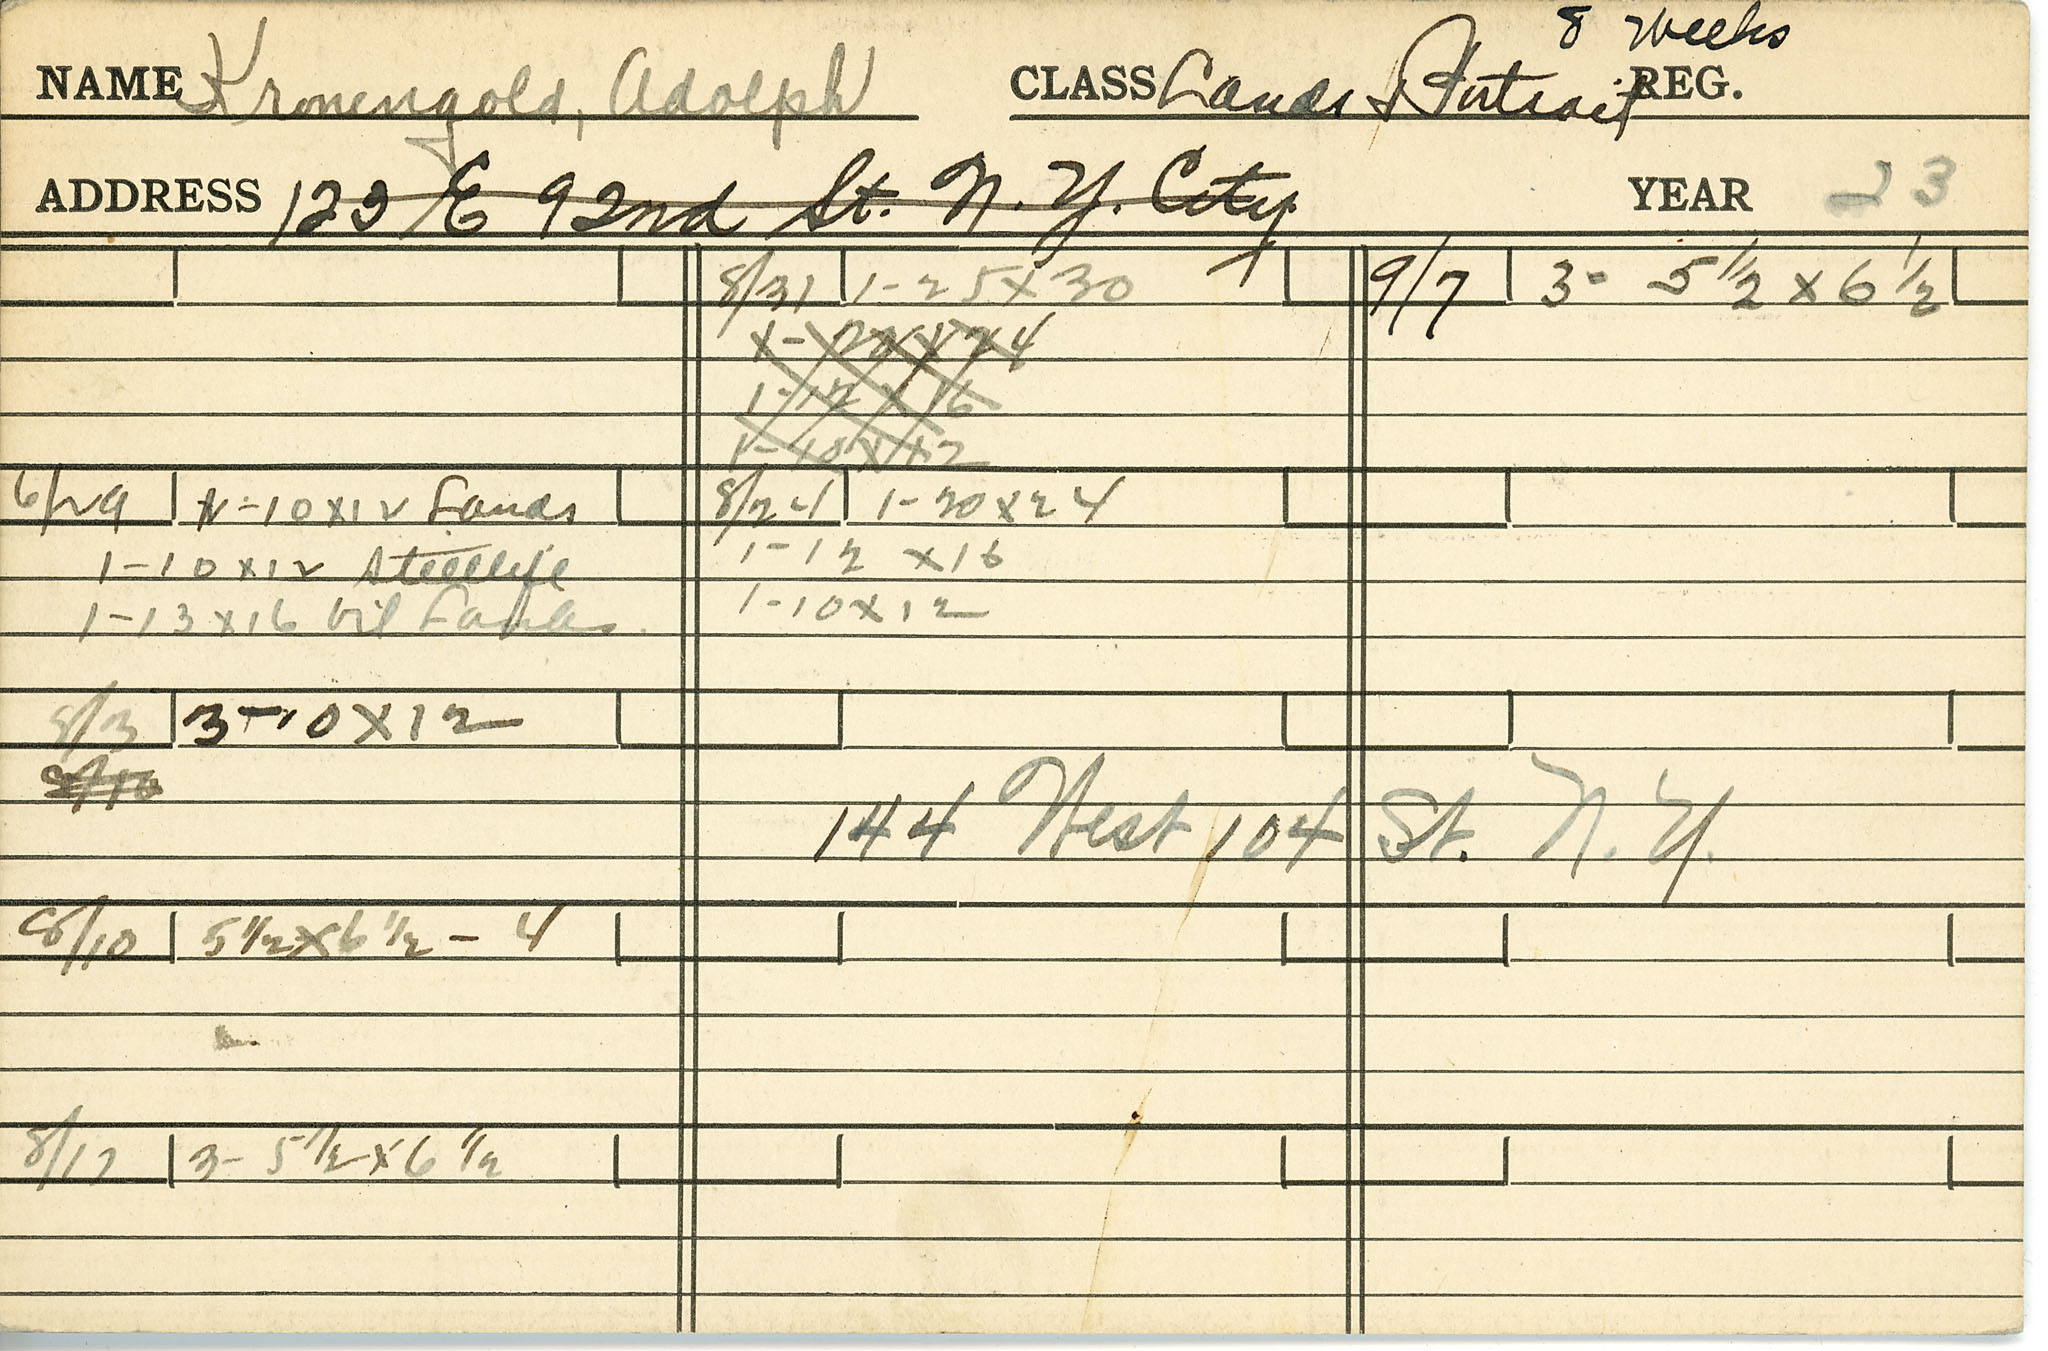 8 Weeks
NAME Kronengold, Adolph CLASS Lands & Portrait REG.
ADDRESS 123 E 92nd St. N.Y. City YEAR 23
8/31 1-25x30
1-20x24
1-12x16
1-10x12
9/7 3- 5 1/2 x 6 1/2
6/29 1-10x12 Lands
1-10x12 Stilllife
1-13x16 Oil Lands.
8/24 1-20x24
1-12 x16
1-10x12
8/3 3-10x12
8/10
144 West 104 St. N.Y.
8/10 5 1/2 x 6 1/2 - 4
8/17 3- 5 1/2 x 6 1/2